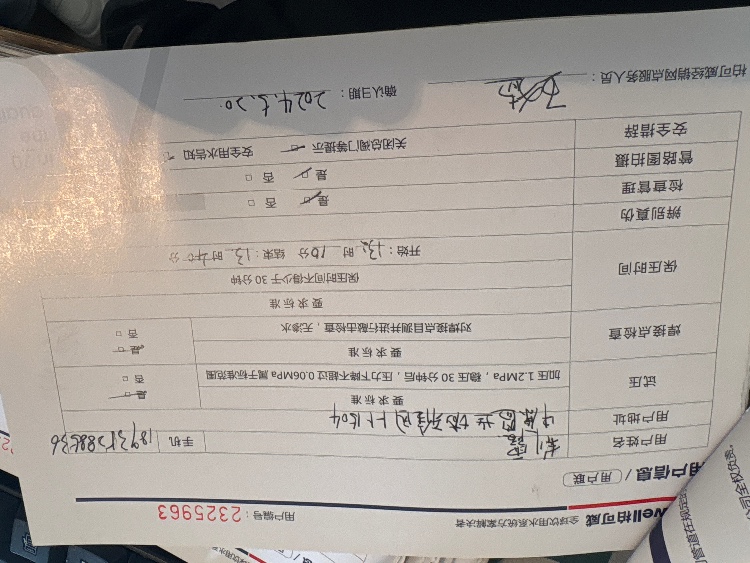 well柏可威 全球饮用水系统方案解决者 用户编号：2325963
用户信息 / 用户联
用户姓名 手机
用户地址 1604
试压 要求标准 是
加压1.2MPa，稳压30分钟后，压力下降不超过0.06MPa属于标准范围 否
焊接点检查 要求标准 是
对焊接点目测并进行敲击检查，无渗水 否
保压时间 要求标准
保压时间不得少于30分钟
开始：13 时 10分 结束：13 时40分
辨别真伪
检查管理 是 否
管路图拍摄 是 否
安全措辞 关闭总阀门等提示 安全用水告知
柏可威经销网点服务人员： 确认日期：2024.5.20
公司全权负责。